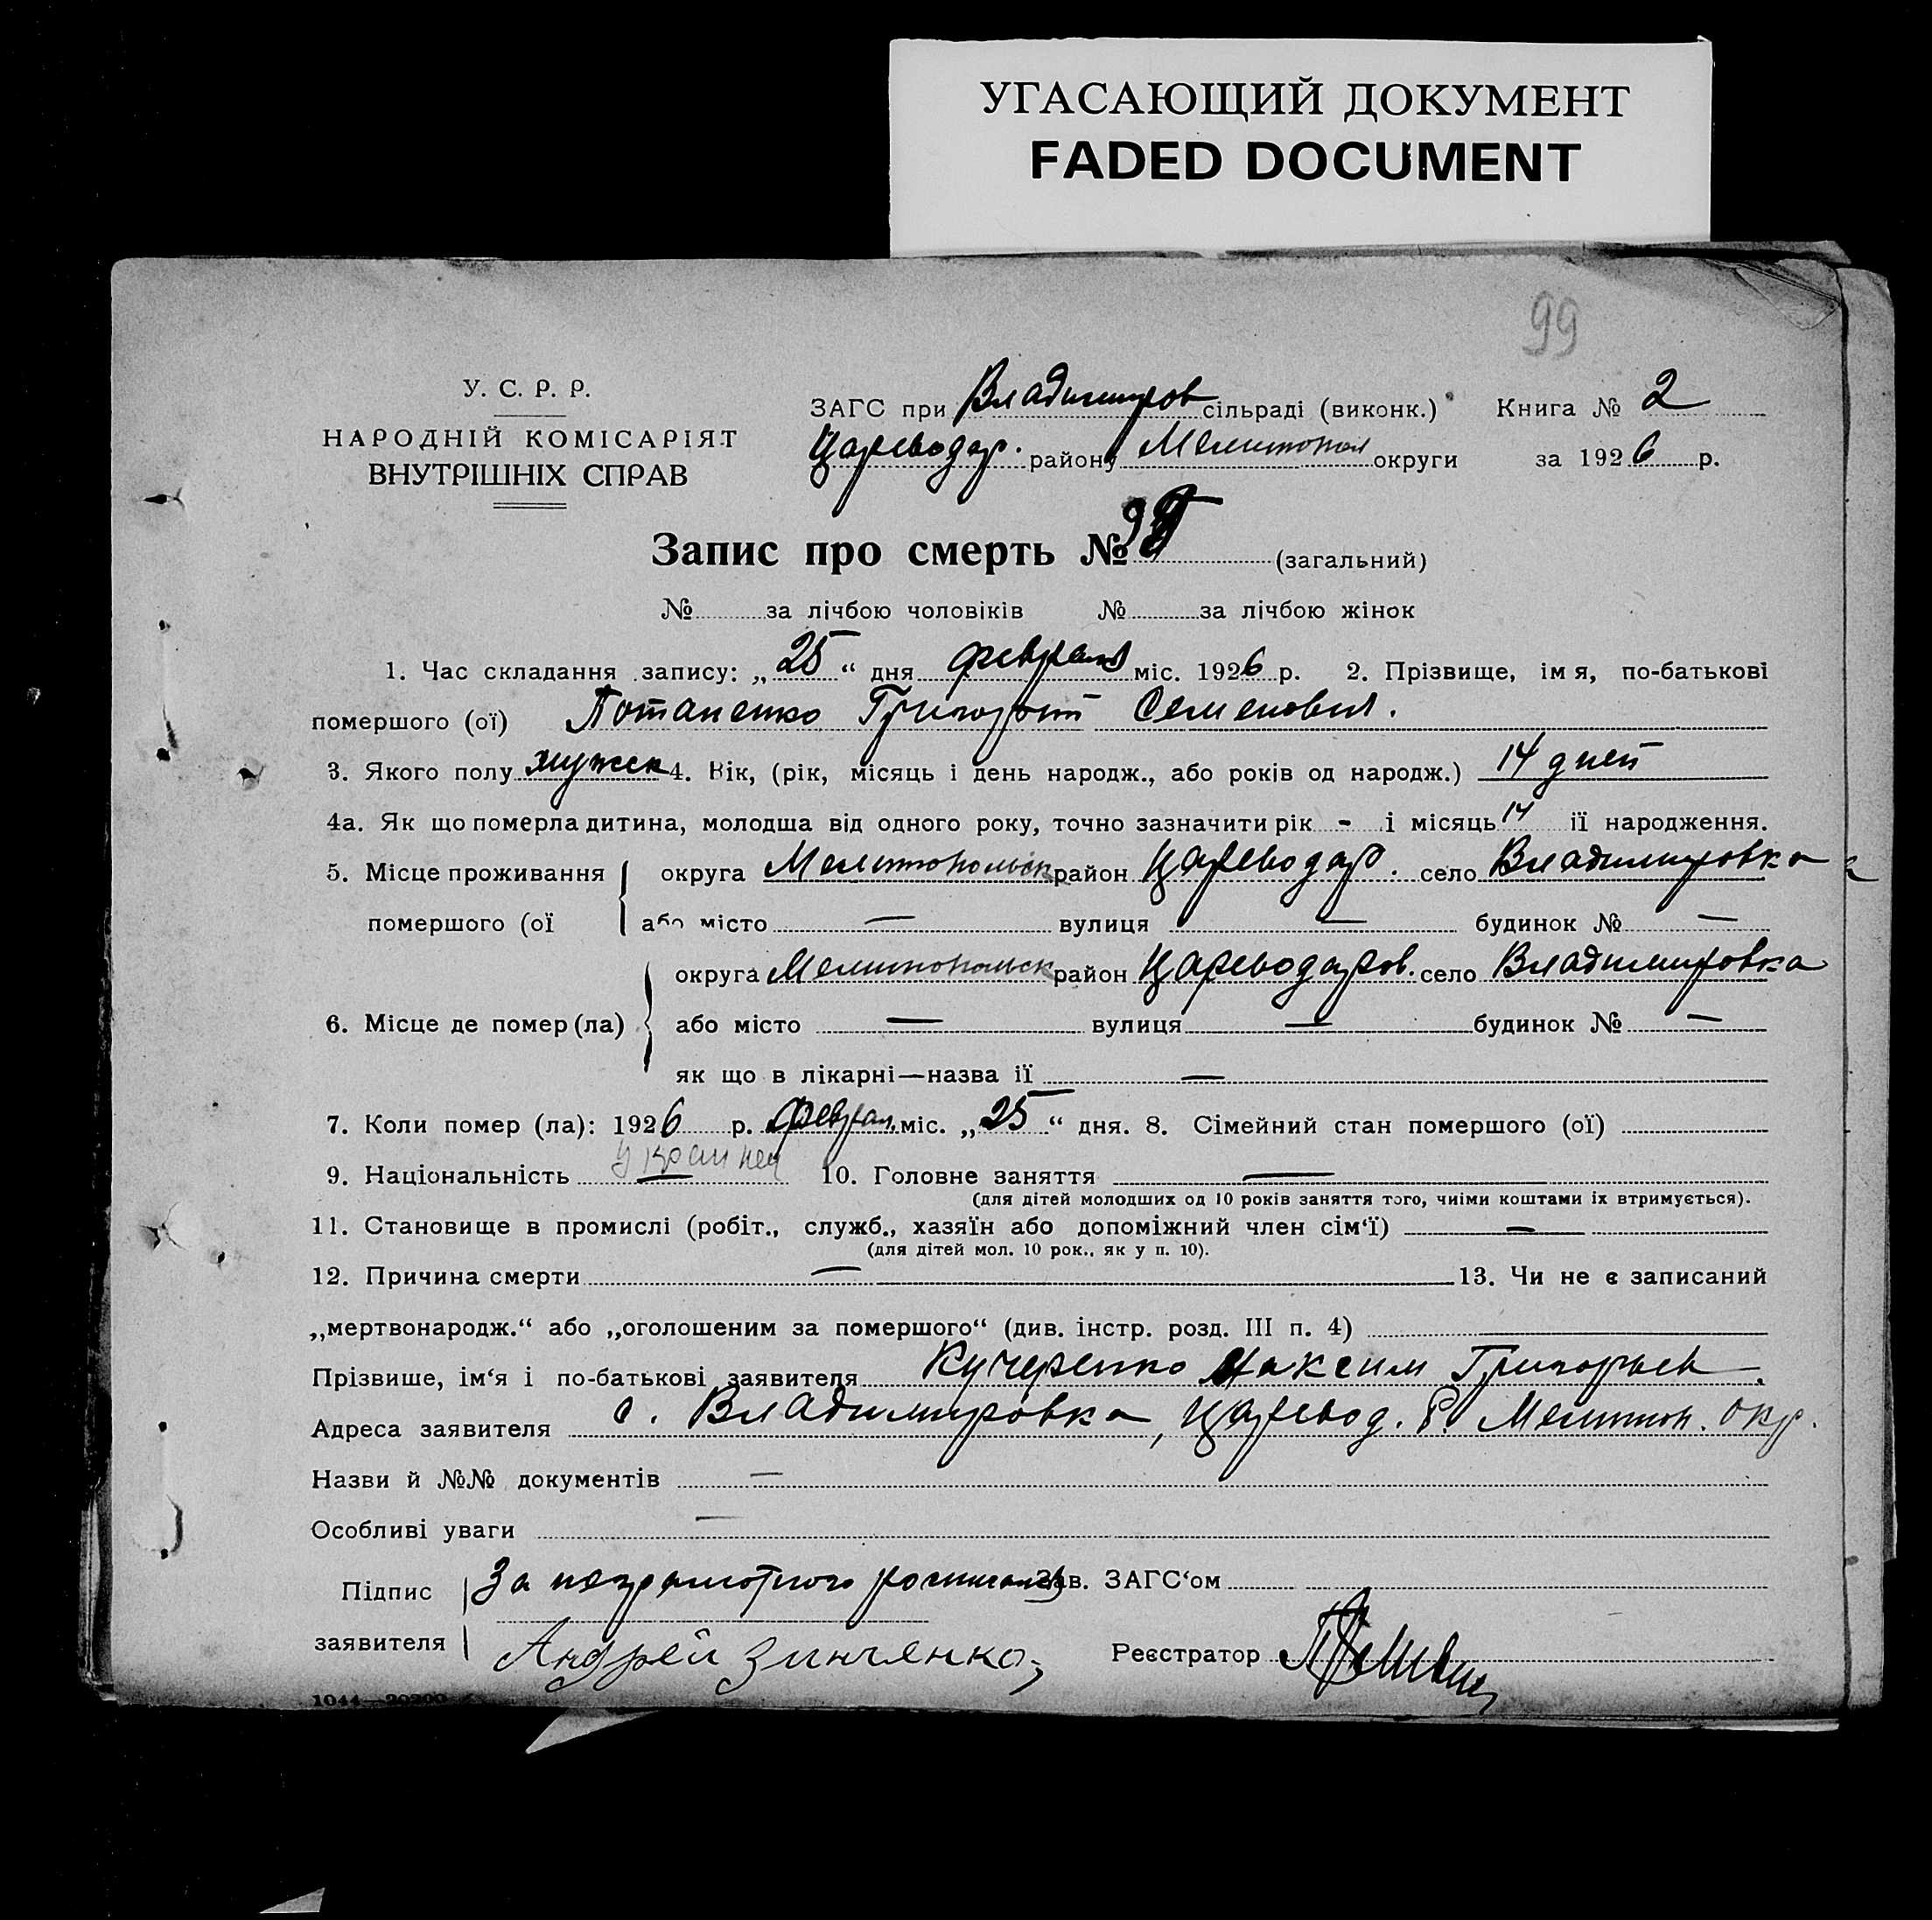 УГАСАЮЩИЙ ДОКУМЕНТ
FADED DOCUMENT
99
У. С. Р. Р.
НАРОДНІЙ КОМІСАРІЯТ
ВНУТРІШНІХ СПРАВ
ЗАГС при Владимиров сільраді (виконк.) Книга № 2
Цареводар. району Мелитопол округи за 1926 р.
Запис про смерть № (загальний)
№ за лічбою чоловіків № за лічбою жінок
1. Час складання запису: „25“ дня февраля міс. 1926 р. 2. Прізвище, імя, по-батькові
помершого (ої) Потапенко Григорий Семенович.
3. Якого полу мужск 4. Вік, (рік, місяць і день народж., або років од народж.) 14 дней
4а. Як що померла дитина, молодша від одного року, точно зазначити рік - і місяць 14 її народження.
5. Місце проживання помершого (ої округа Мелитопольск район Цареводар. село Владимировка
або місто — вулиця — будинок № —
6. Місце де помер (ла) округа Мелитопольск район Цареводаров. село Владимировка
або місто — вулиця — будинок № —
як що в лікарні—назва ії —
7. Коли помер (ла): 1926 р. феврал. міс. „25“ дня. 8. Сімейний стан помершого (ої)
9. Національність — 10. Головне заняття —
(для дітей молодших од 10 років заняття того, чиіми коштами іх втримується).
11. Становище в промислі (робіт., служб., хазяїн або допоміжний член сім‘ї) —
(для дітей мол. 10 рок., як у п. 10).
12. Причина смерти — 13. Чи не є записаний
„мертвонародж.“ або „оголошеним за помершого“ (див. інстр. розд. III п. 4)
Прізвише, ім‘я і по-батькові заявителя Кучеренко Максим Григорьев.
Адреса заявителя с. Владимировка, Царевод. Р. Мелитоп. окр.
Назви й №№ документів —
Особливі уваги —
Підпис заявителя За неграмотного росписался Зав. ЗАГС‘ом
Андрей Зинченко Реєстратор
1044—20200